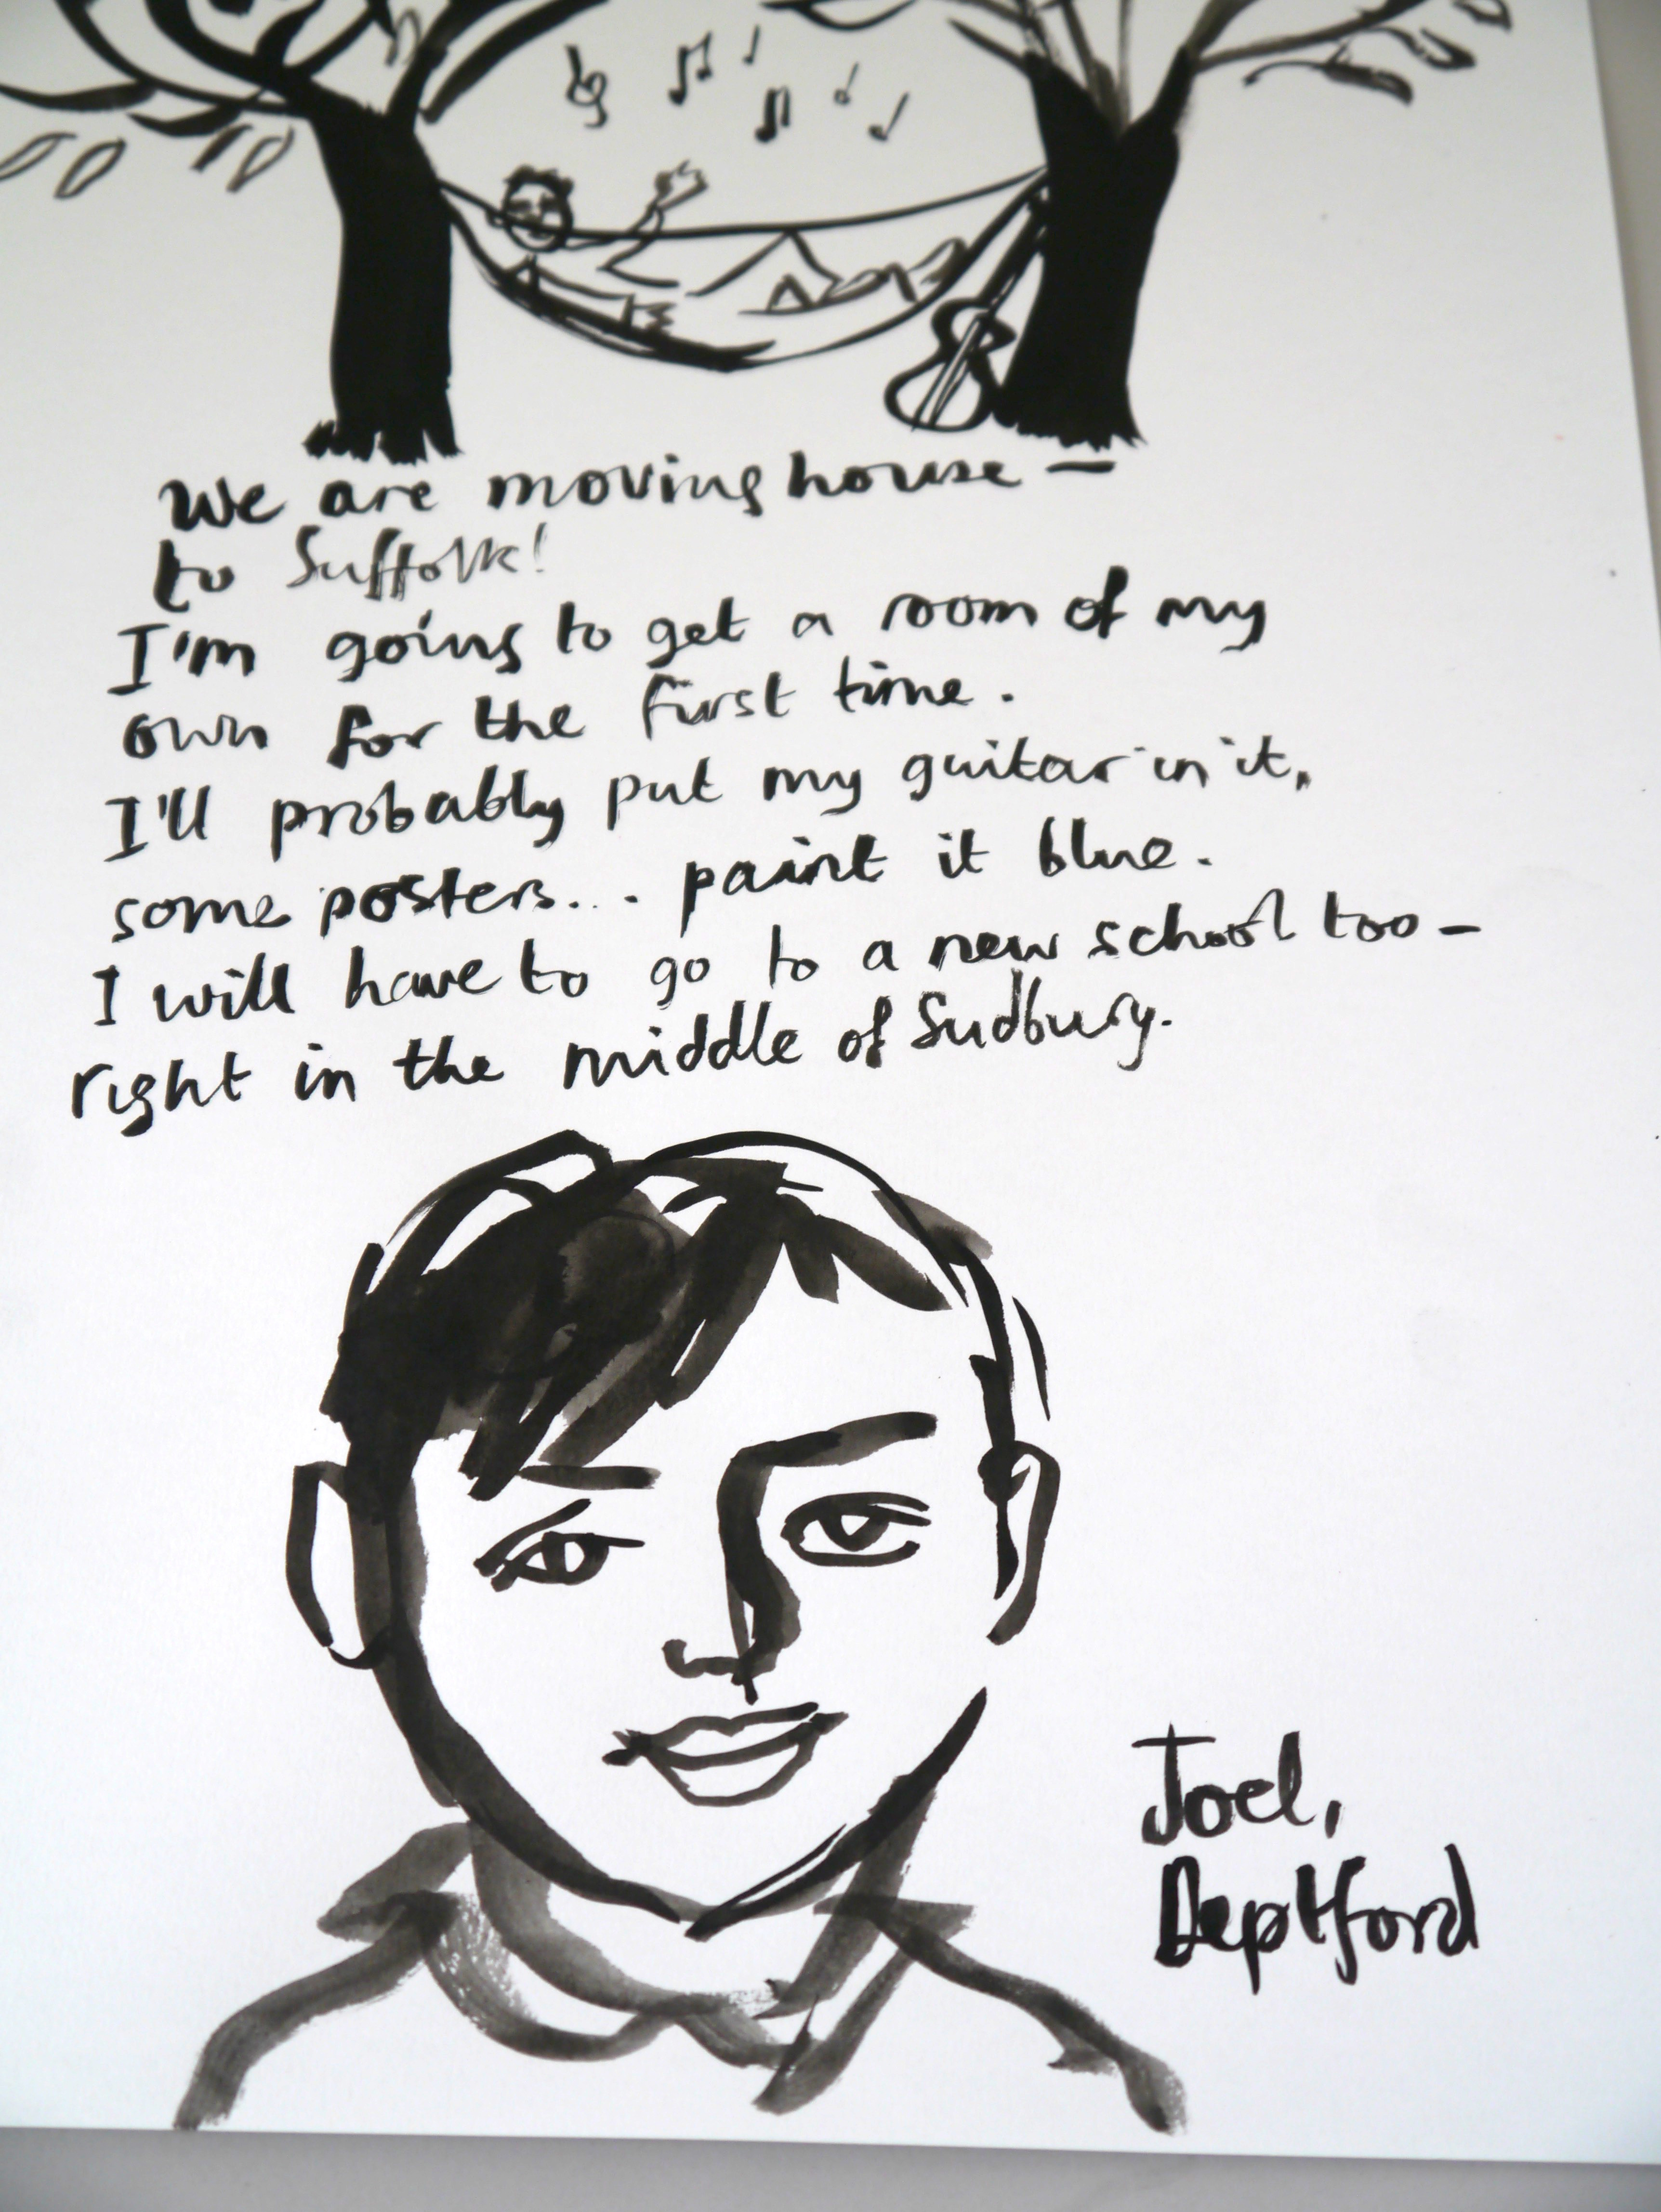 We are moving house –
to Suffolk!
I'm going to get a room of my
own for the first time.
I'll probably put my guitar in it,
some posters... paint it blue.
I will have to go to a new school too –
right in the middle of Sudbury.
Joel,
Deptford